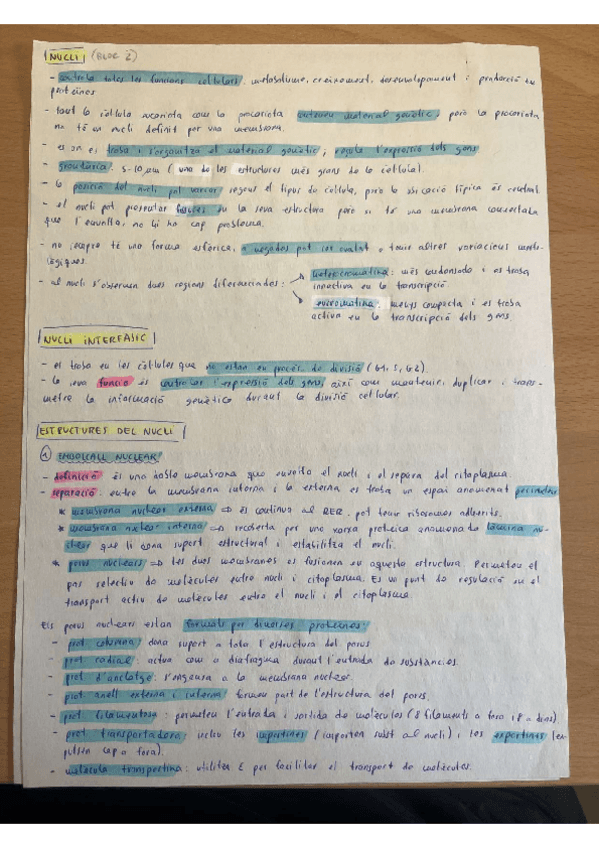 NUCLI (BLOC 2)
- controla totes les funcions cel·lulars: metabolisme, creixement, desenvolupament i producció de
proteïnes
- tant la cèl·lula eucariota com la procariota contenen material genètic, però la procariota
no té un nucli definit per una membrana.
- es on es troba i s'organitza el material genètic; regula l'expressió dels gens
- grandària: 5-10 µm (una de les estructures més grans de la cèl·lula).
- la posició del nucli pot variar segons el tipus de cèl·lula, però la ubicació típica és central.
- el nucli pot presentar fissures en la seva estructura però si té una membrana
que l'envolta, no hi ha cap problema.
- no sempre té una forma esfèrica, a vegades pot ser ovalat o tenir altres variacions morfo-
lògiques.
- al nucli s'observen dues regions diferenciades: → heterocromatina: més condensada i es troba
inactiva en la transcripció.
→ eucromatina: menys compacta i es troba
activa en la transcripció dels gens.
NUCLI INTERFÀSIC
- es troba en les cèl·lules que no estan en procés de divisió (G1, S, G2).
- la seva funció és controlar l'expressió dels gens, així com mantenir, duplicar i trans-
metre la informació genètica durant la divisió cel·lular.
ESTRUCTURES DEL NUCLI
1 EMBOLCALL NUCLEAR:
- definició: és una doble membrana que envolta el nucli i el separa del citoplasma.
- separació: entre la membrana interna i la externa es troba un espai anomenat perinuclear
* membrana nuclear externa ⇒ és continua al RER, pot tenir ribosomes adherits.
* membrana nuclear interna ⇒ recoberta per una xarxa proteica anomenada làmina nu-
clear que li dona suport estructural i estabilitza el nucli.
* porus nuclears ⇒ les dues membranes es fusionen en aquesta estructura. Permeten el
pas selectiu de molècules entre nucli i citoplasma. Es un punt de regulació en el
transport actiu de molècules entre el nucli i el citoplasma.
Els porus nuclears estan formats per diverses proteïnes:
- prot columna: dona suport a tota l'estructura del porus
- prot radial: actua com a diafragma durant l'entrada de substàncies.
- prot d'anclatge: s'enganxa a la membrana nuclear.
- prot anell externa i interna: formen part de l'estructura del porus.
- prot filamentosa: permeten l'entrada i sortida de molècules (8 filaments a fora i 8 a dins).
- prot transportadora: inclou les importines (importen subst al nucli) i les exportines (ex-
pulsen cap a fora).
- molècula transportina: utilitza E per facilitar el transport de molècules.